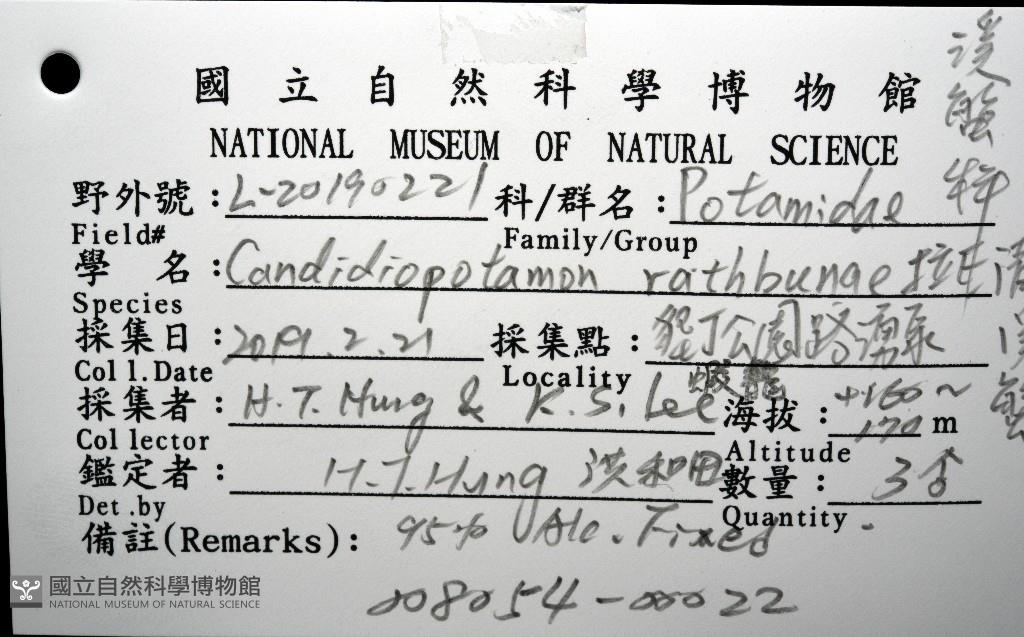 國立自然科學博物館
NATIONAL MUSEUM OF NATURAL SCIENCE
野外號：L-20190221 科/群名：Potamidae 溪蟹科
Field# Family/Group
學名：Candidiopotamon rathbunae 拉氏清溪蟹
Species
採集日：2019.2.21 採集點：墾丁公園路湧泉
Coll.Date Locality 蝦籠
採集者：H.T. Hung & K.S. Lee 海拔：+160~170 m
Collector Altitude
鑑定者：H.T. Hung 洪和田 數量：3♂
Det.by Quantity
備註(Remarks)：95% Alc. Fixed
008054-00022
國立自然科學博物館
NATIONAL MUSEUM OF NATURAL SCIENCE